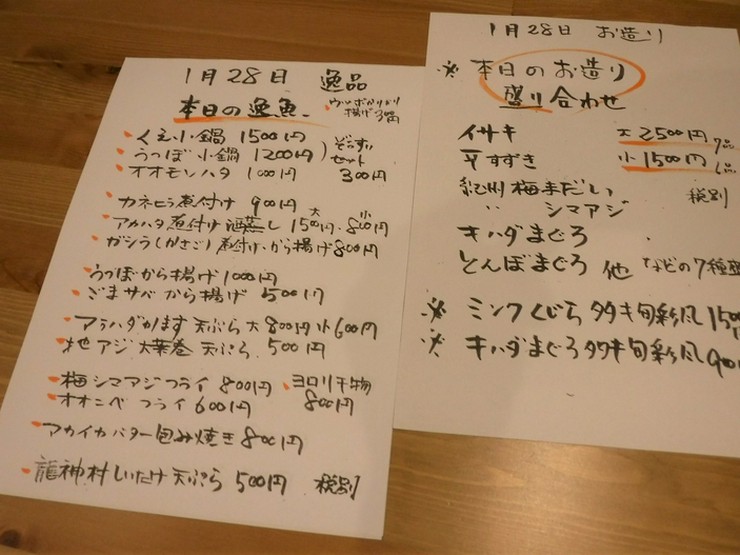 1月28日 逸品
本日の逸魚
揚げ
くえ小鍋 1500円
うつぼ小鍋 1200円
ぞうすい
セット
300円
オオモンハタ 1000円
カネヒラ煮付け 900円
アカハタ煮付け 酒蒸し 大1500円・小800円
ガシラ(かさご)煮付け・から揚げ800円
うつぼから揚げ1000円
ごまサバから揚げ 500円
アラハダかます 天ぷら 大800円 小600円
地アジ 大葉巻 天ぷら 500円
梅シマアジフライ 800円
オオニベ フライ 600円
ヨロリ干物
800円
アカイカバター包み焼き 800円
龍神村しいたけ天ぷら 500円 税別
1月28日 お造り
※本日のお造り
盛り合わせ
イサキ
平すずき
紀州梅まだい
〃 シマアジ
キハダまぐろ
とんぼまぐろ 他 などの7種盛
大2500円 7品
小1500円 6品
税別
※ミンククじら タタキ旬彩風 1500
※キハダまぐろタタキ旬彩風 900